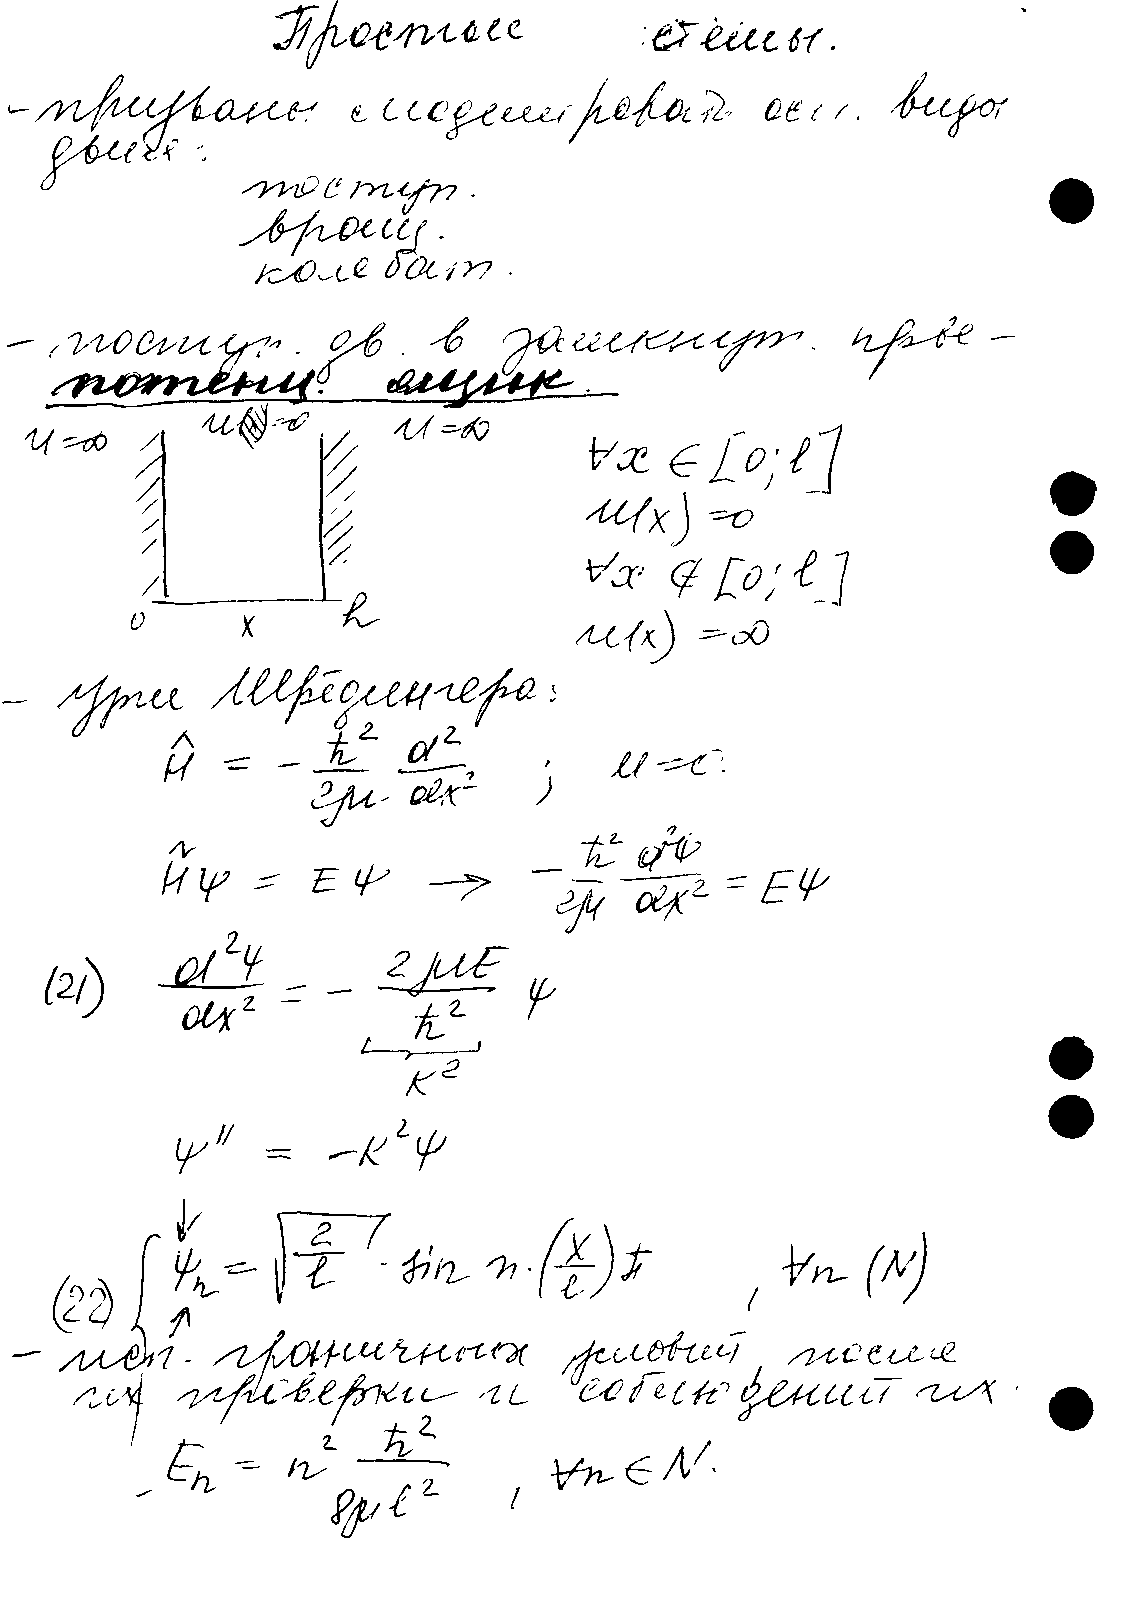 Простые стемы.
- призваны смоделировать осн. виды
движ.:
поступ.
вращ.
колебат.
- поступ. дв. в замкнут. пр-ве -
потенц. ящик.
U=∞ U=0 U=∞
∀x ∈ [0; l]
U(x) =0
∀x ∉ [0; l]
U(x) =∞
0 x
- ур-ие Шрёдингера:
Ĥ = - ħ²/2μ d²/dx² ; U=0.
Ĥψ = Eψ → - ħ²/2μ d²ψ/dx² = Eψ
(21) d²ψ/dx² = - 2μE/ħ² ψ
k²
ψ'' = -k²ψ
(22) { ψn = √(2/l) · sin n·(x/l)π , ∀n (N)
- исп. граничных условий, после
их проверки и соблюдений их.
En = n² ħ²/8μl² , ∀n ∈ N.